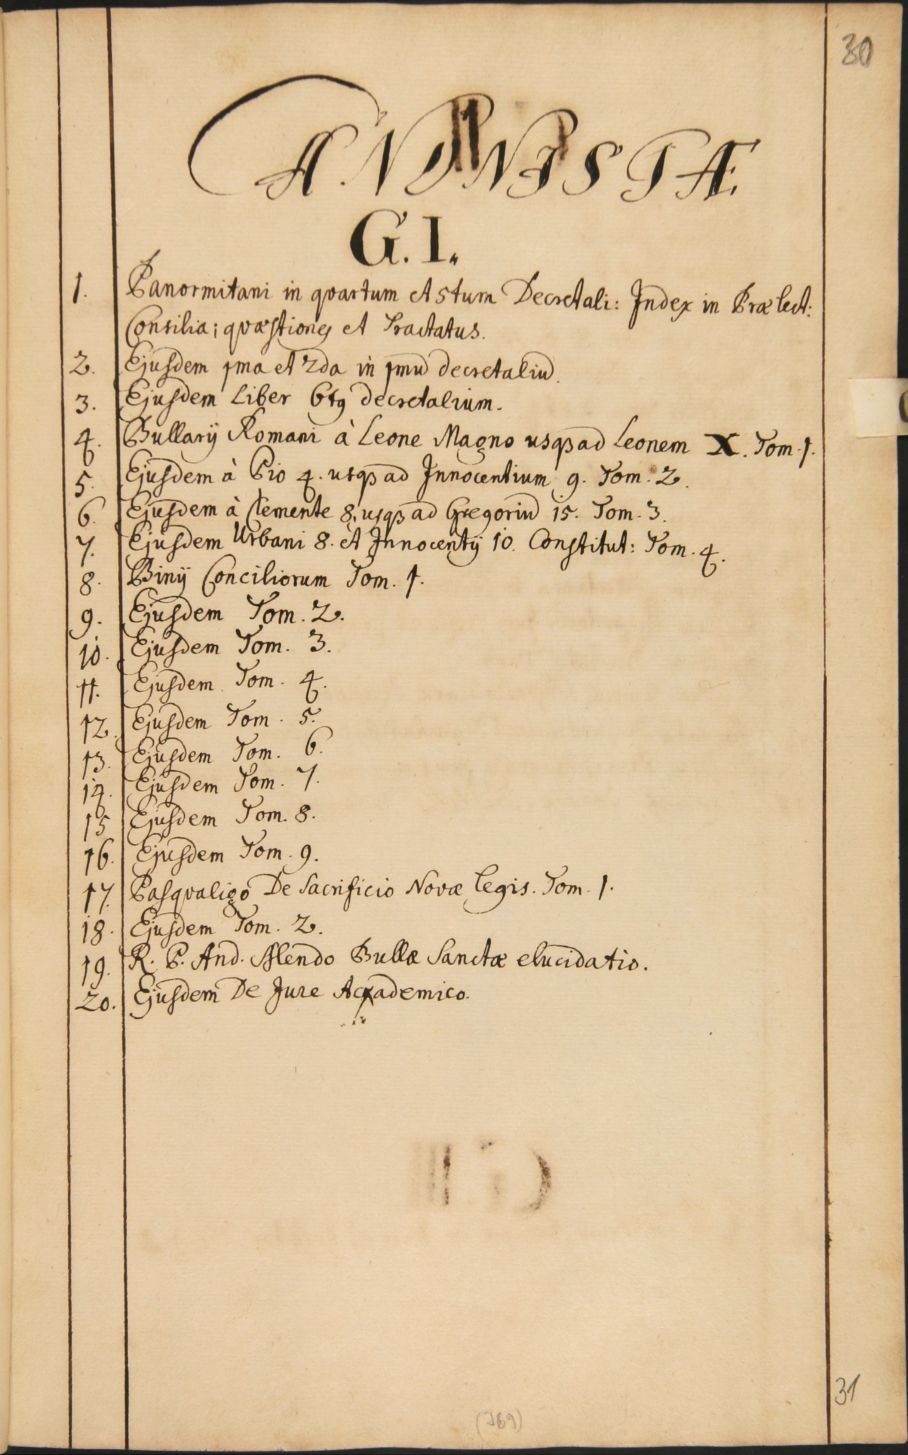 30
CANONISTÆ.
G. I.
1. Panormitani in quartum et 5tum Decretali: Index in Prælect:
Consilia; quæstiones et Tractatus.
2. Ejusdem 1ma et 2da in 1mū decretaliū.
3. Ejusdem Liber 6tq decretalium.
4. Bullarij Romani à Leone Magno usqȝ ad Leonem X. Tom. 1.
5. Ejusdem à Pio 4. usqȝ ad Innocentium 9. Tom. 2.
6. Ejusdem à Clemente 8. usqȝ ad Gregoriū 15. Tom. 3.
7. Ejusdem Urbani 8. et Innocentij 10. Constitut: Tom. 4.
8. Binij Conciliorum Tom. 1.
9. Ejusdem Tom. 2.
10. Ejusdem Tom. 3.
11. Ejusdem Tom. 4.
12. Ejusdem Tom. 5.
13. Ejusdem Tom. 6.
14. Ejusdem Tom. 7.
15 Ejusdem Tom. 8.
16. Ejusdem Tom. 9.
17. Pasqvaligo De Sacrificio Novæ legis. Tom. 1.
18. Ejusdem Tom. 2.
19. R. P. And. Mendo Bullæ Sanctæ elucidatio.
20. Ejusdem De Jure Academico.
31
(769)